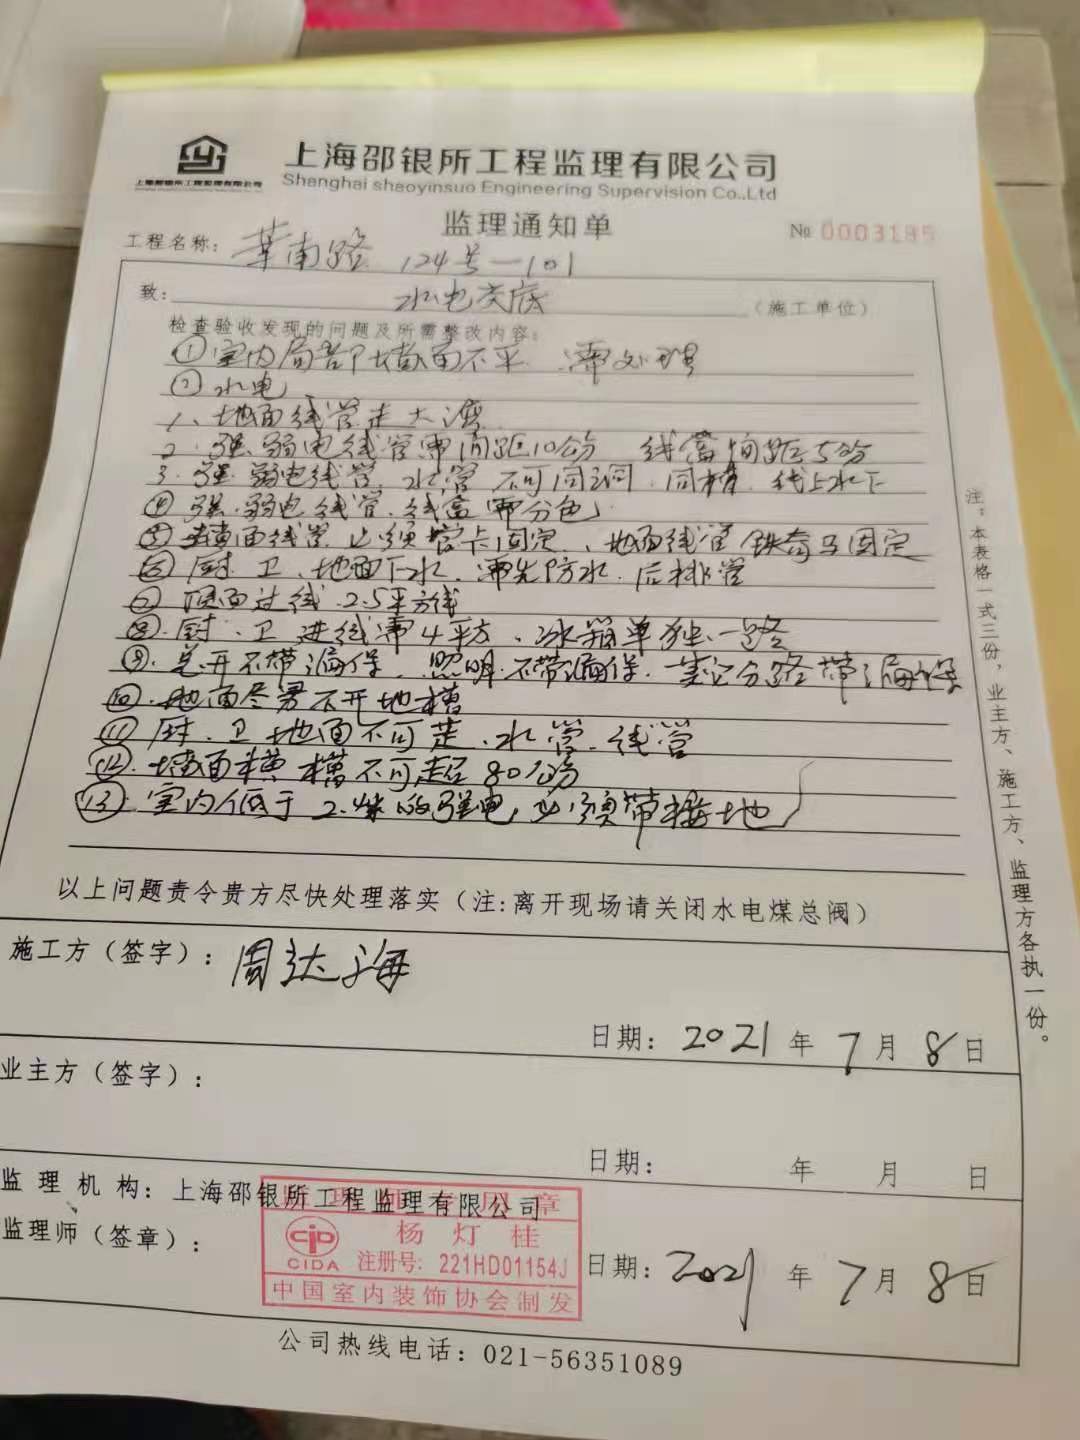 上海邵银所工程监理有限公司
上海邵银所工程监理有限公司
Shanghai shaoyinsuo Engineering Supervision Co.,Ltd
监理通知单
№ 0003185
工程名称: 华南路 124号-101
致: 水电交底 (施工单位)
检查验收发现的问题及所需整改内容:
① 室内局部墙面不平 需处理
② 水电
1、地面线管走大弯
2. 强.弱电线管需间距10公分 线盒间距5公分
3. 强.弱电线管.水管 不可同洞.同槽.线上水下
④ 强.弱电线管.线盒需分色
⑤ 墙面线管必须管卡固定、地面线管铁奇马固定
⑥ 厨.卫.地面下水.需先防水.后排管
⑦ 顶面过线 2.5平方线
⑧. 厨.卫进线需4平方.冰箱单独一路
⑨. 总开不带漏保.照明.不带漏保.其它分路带漏保
⑩. 地面尽量不开地槽
⑪ 厨.卫地面不可走.水管.线管
⑫. 墙面横槽不可超80公分
⑬. 室内低于2.米的强电,必须带接地
以上问题责令贵方尽快处理落实(注:离开现场请关闭水电煤总阀)
注:本表格一式三份,业主方、施工方、监理方各执一份。
施工方(签字): 周达海
日期: 2021 年 7 月 8 日
业主方(签字):
日期: 年 月 日
监理机构: 上海邵银所工程监理有限公司
监理师(签章):
监理师专用章
杨灯桂
CIDA 注册号: 221HD01154J
中国室内装饰协会制发
日期: 2021 年 7 月 8 日
公司热线电话: 021-56351089